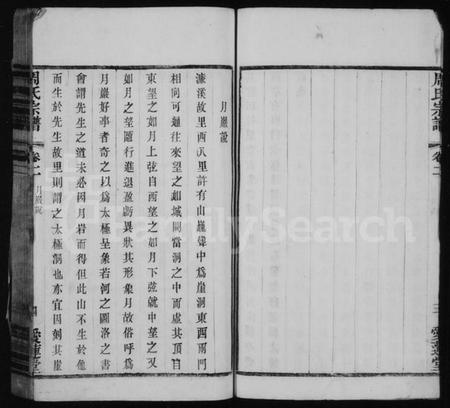 周氏宗譜
卷二
三
愛蓮堂
月巖說
濂溪故里西八里許有山巃聳中為崖洞東西兩門
相向可通往來望之如城闕當洞之中而虛其頂自
東望之如月上弦自西望之如月下弦就中望之又
如月之望隨行進退盈虧異狀其形象月故俗呼為
月巖好事者奇之以為太極呈象若河之圖洛之書
會謂先生之道未必因月岩而得但此山不生於他
而生於先生故里則謂之太極洞也亦宜因刻其崖
周氏宗譜
卷二
月巖說
四
愛蓮堂
FamilySearch